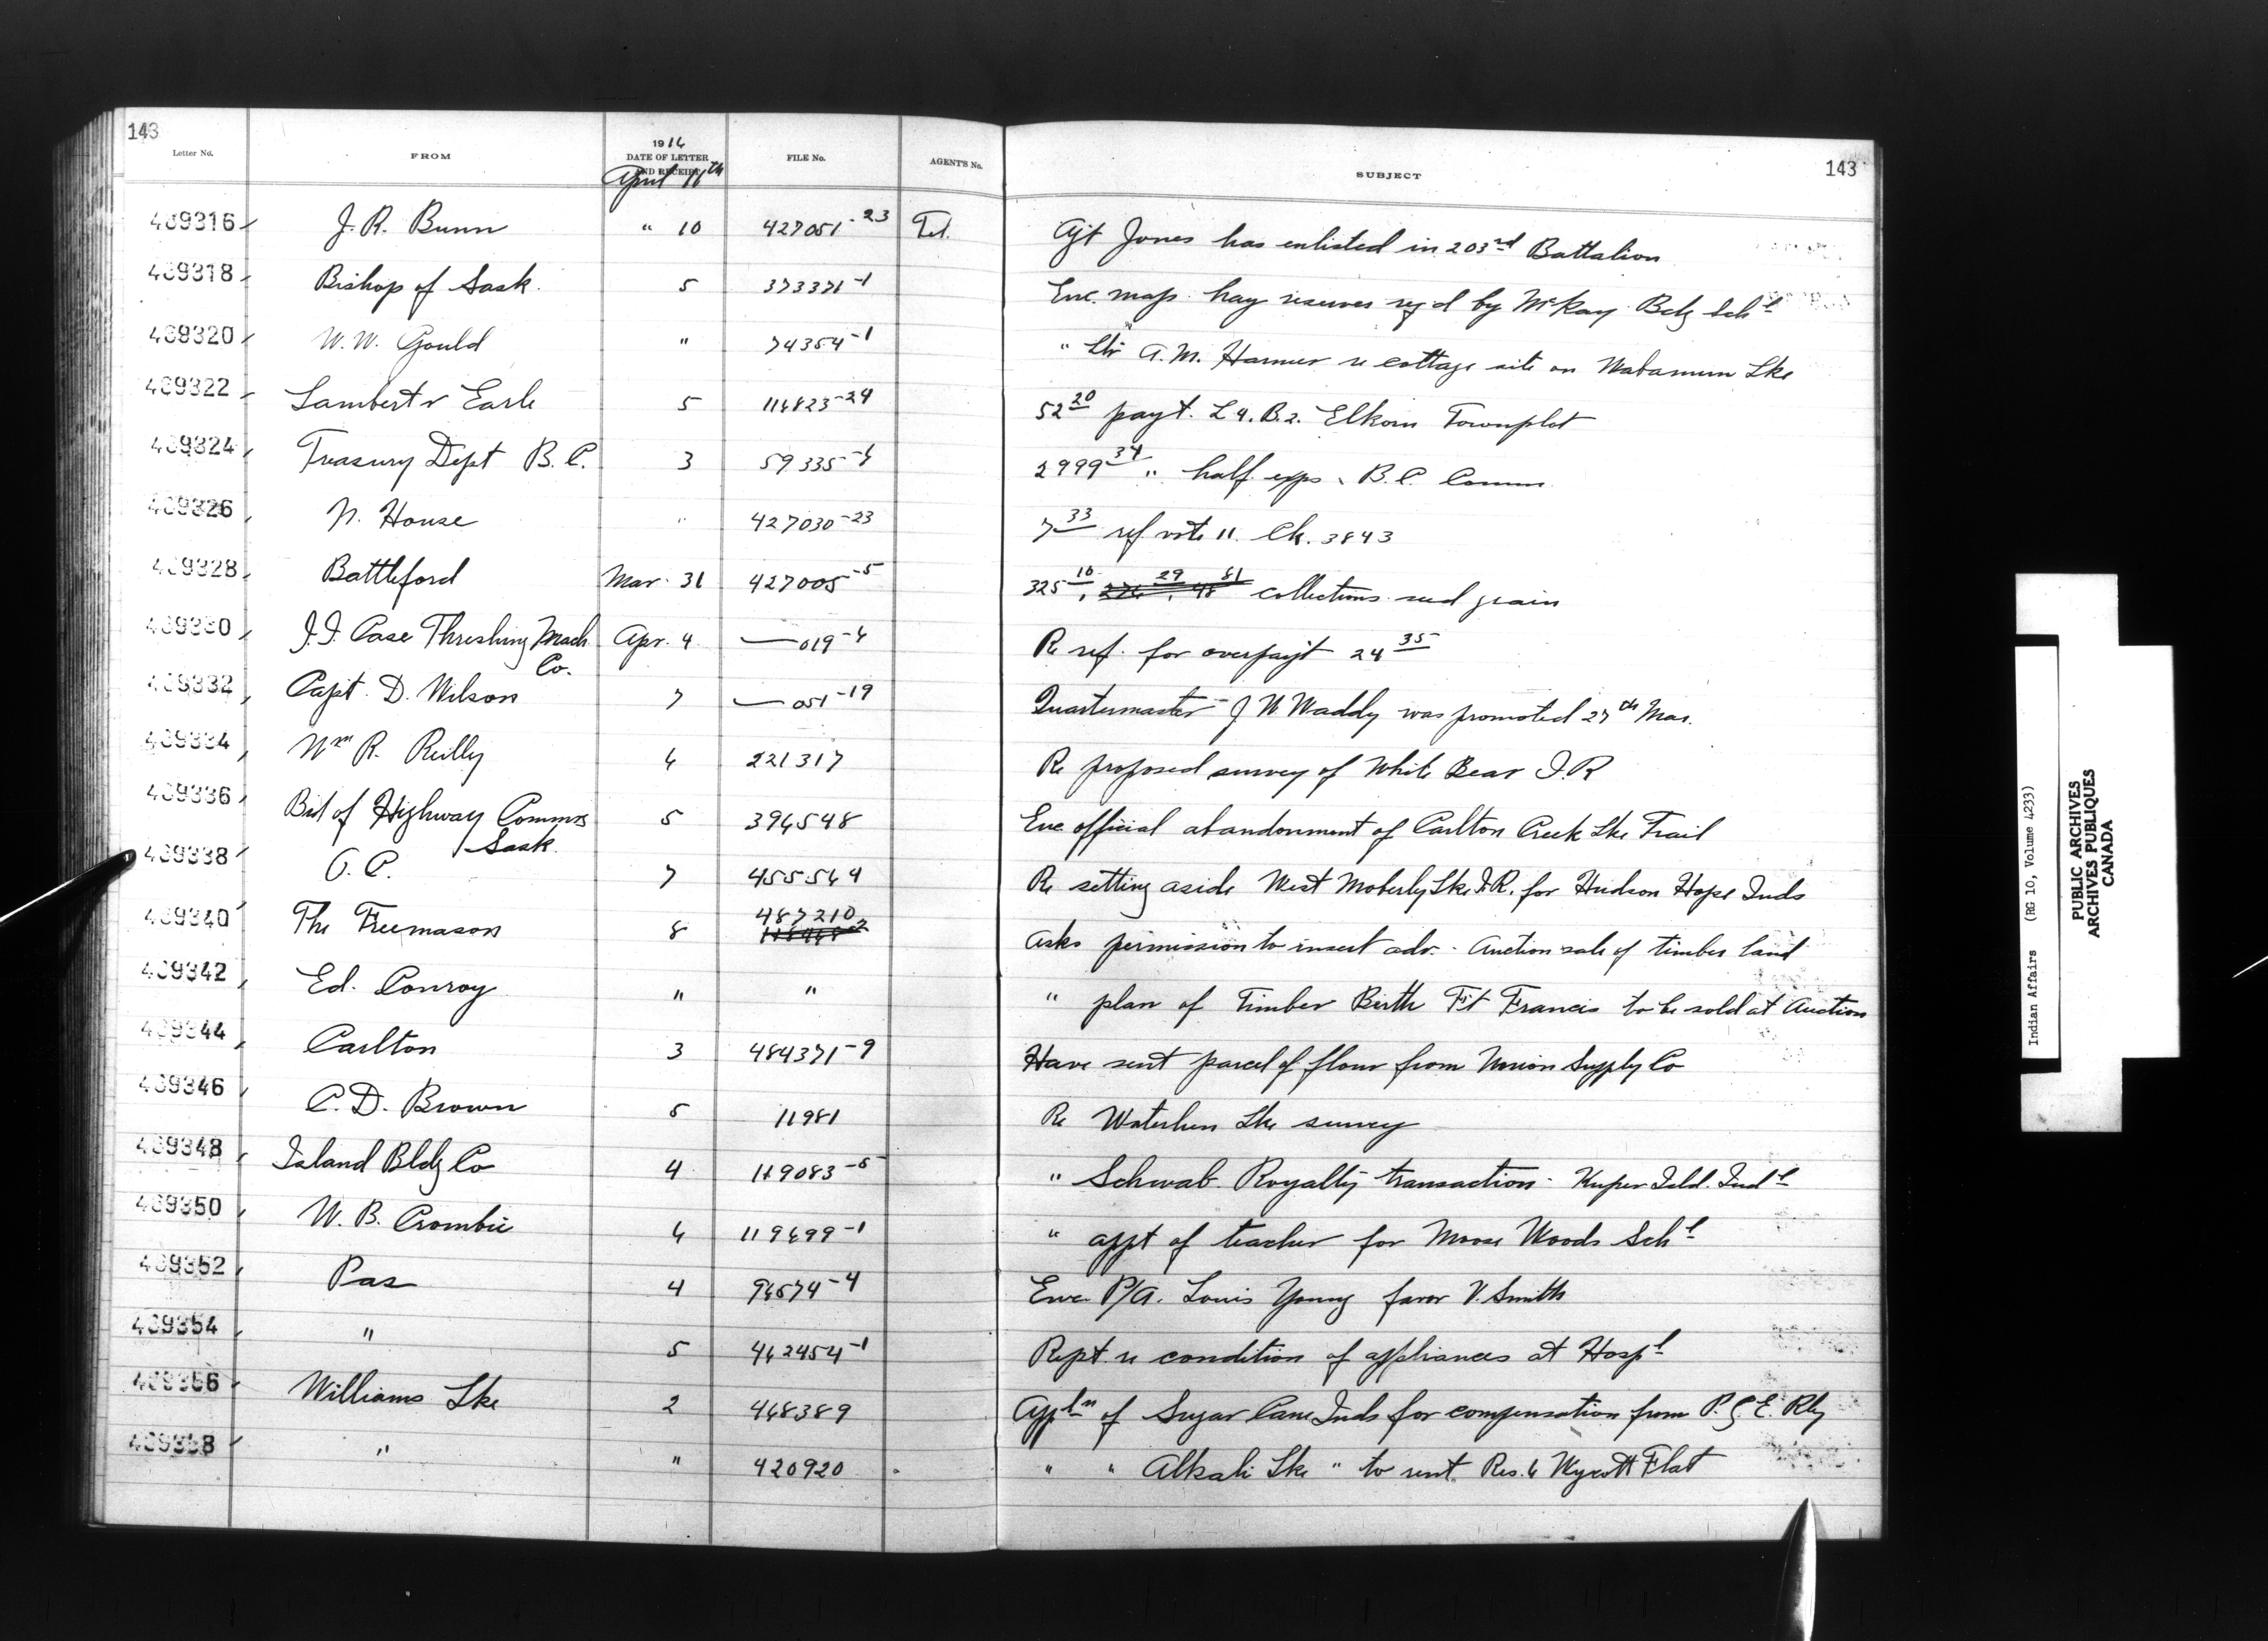 143
Letter No. FROM 1916 DATE OF LETTER AND RECEIPT FILE No. AGENT'S No. SUBJECT 143
April 11th
409316 J. R. Bunn " 10 427051-23 Tel. Agt Jones has enlisted in 203rd Battalion
409318 Bishop of Sask. 5 373371-1 Enc. map hay reserves reqd by McKay Bdg Schl
409320 W. W. Gould " 74354-1 " ltr A. M. Harmer re cottage site on Wabamum Lke
409322 Lambert & Earle 5 116823-24 52 20 payt. L 4. B. 2. Elkorn Townplot
409324 Treasury Dept B. C. 3 59335-6 2999 34 " half exps B. C. Comm
409326 N. House " 427030-23 7 33 ref vote 11. Ck. 3843
409328 Battleford Mar. 31 427005-5 325 10, 276 29, 48 81 collections seed grain
409330 J. I. Case Threshing Mach. Co. Apr. 4 —019-6 Re ref. for overpayt 24 35
409332 Capt. D. Wilson 7 —051-19 Quartermaster J W Waddy was promoted 27th Mar.
409334 Wm R. Reilly 6 221317 Re proposed survey of White Bear I. R
409336 Brd of Highway Commrs Sask. 5 396548 Enc official abandonment of Carlton Creek Lke Trail
409338 O. C. 7 455564 Re setting aside West Moberly Lke I. R. for Hudson Hope Inds
409340 The Freemason 8 487210 Asks permission to insert adv. - Auction sale of timber land
409342 Ed. Conroy " " " plan of Timber Birth Ft Francis to be sold at Auction
409344 Carlton 3 484371-9 Have sent parcel of flour from Union Supply Co
409346 C. D. Brown 5 11981 Re Waterhen Lke survey
409348 Island Bldg Co 4 119083-5 " Schwab Royalty transaction - Kuper Isld. Indl
409350 W. B. Crombie 6 119699-1 " appt of teacher for Moose Woods Schl
409352 Pas 4 96574-4 Enc P/A. Louis Young favor V. Smith
409354 " 5 462454-1 Rept. re condition of appliances at Hospl
409356 Williams Lke 2 468389 Appln of Sugar Cane Inds for compensation from P. G. E. Rly
409358 " " 420920 " " Alkali Lke " to rent Res. 6 Wycott Flat
Indian Affairs (RG 10, Volume 4233)
PUBLIC ARCHIVES
ARCHIVES PUBLIQUES
CANADA